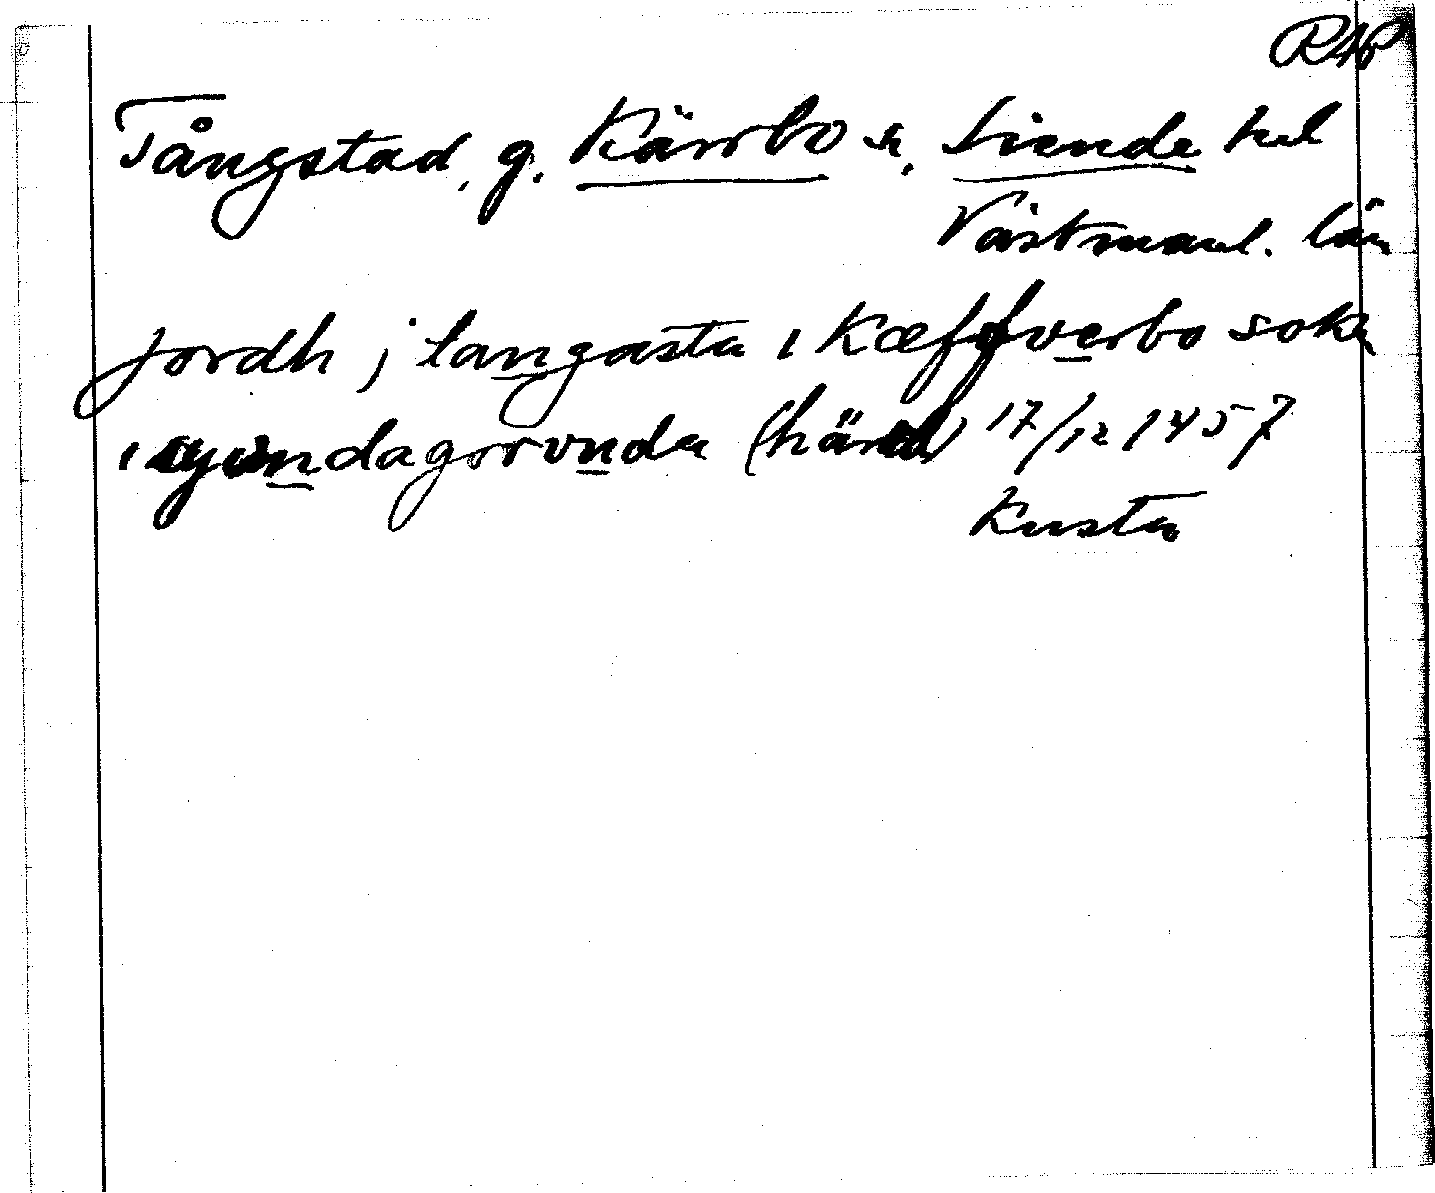 RAP
Tångstad, g. Kärrbo sn, Siende hd
Västmanl. län
jordh j tangasta i Kæffwerbo sokn
i syundagorvnda (härad) 17/12 1457
Kusta